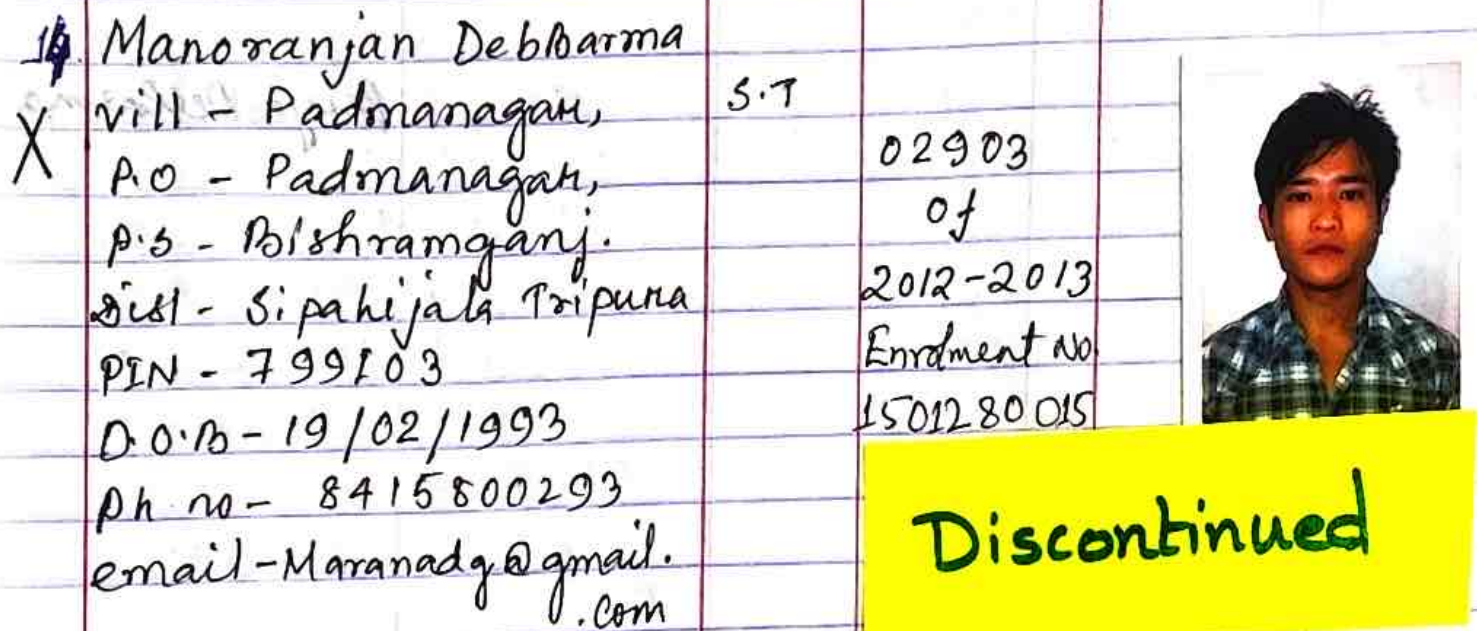 14. Manoranjan DebBarma
X
vill - Padmanagar,
P.O - Padmanagar,
P.S - Bishramganj.
Dist - Sipahijala Tripura
PIN - 799103
D.O.B - 19/02/1993
Ph no - 8415800293
email - Maranadg@gmail.
.com
S.T
02903
of
2012-2013
Enrolment No
1501280015
Discontinued